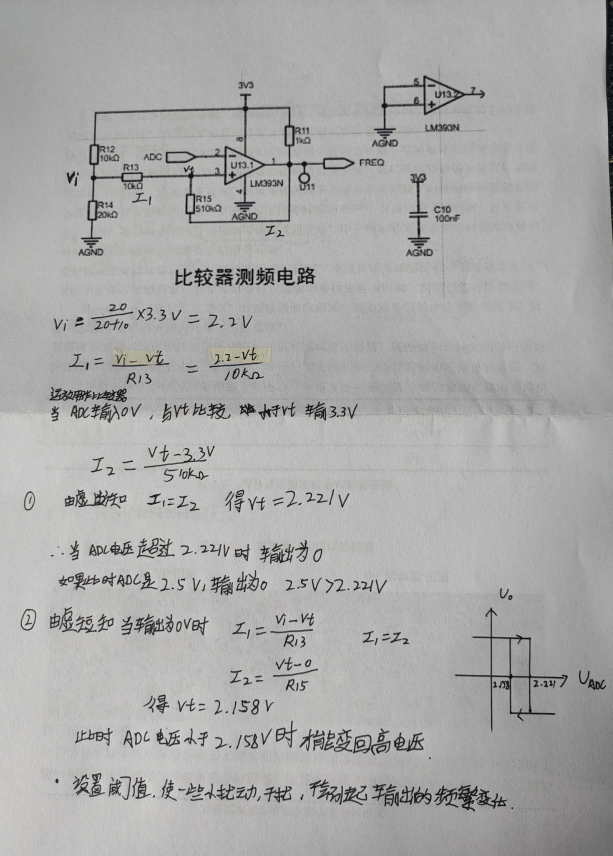 3V3
R12
10kΩ
R11
1kΩ
ADC
2
8
U13.1
1
FREQ
Vi
R13
10kΩ
Vt
3
LM393N
U11
I₁
R15
510kΩ
4
AGND
R14
20kΩ
I₂
AGND
5
6
U13.2
7
LM393N
AGND
3V3
C10
100nF
AGND
比较器测频电路
Vi = 20/(20+10) ×3.3V = 2.2V
I₁ = (Vi-Vt)/R13 = (2.2-Vt)/10kΩ
运放用作比较器
当 ADC输入0V, 与Vt比较, 小于Vt 输3.3V
I₂ = (Vt-3.3V)/510kΩ
① 由虚短知 I₁=I₂ 得Vt=2.221V
∴当ADC电压超过 2.221V时 输出为0
如果此时ADC是2.5V, 输出为0 2.5V>2.221V
② 由虚短知 当输出为0V时 I₁ = (Vi-Vt)/R13 I₁=I₂
I₂ = (Vt-0)/R15
得 Vt= 2.158V
此时 ADC电压小于 2.158V时 才能变回高电压.
U₀
2.158
2.221
U_ADC
· 设置阈值, 使一些小扰动,干扰, 不会引起输出的频繁变化.